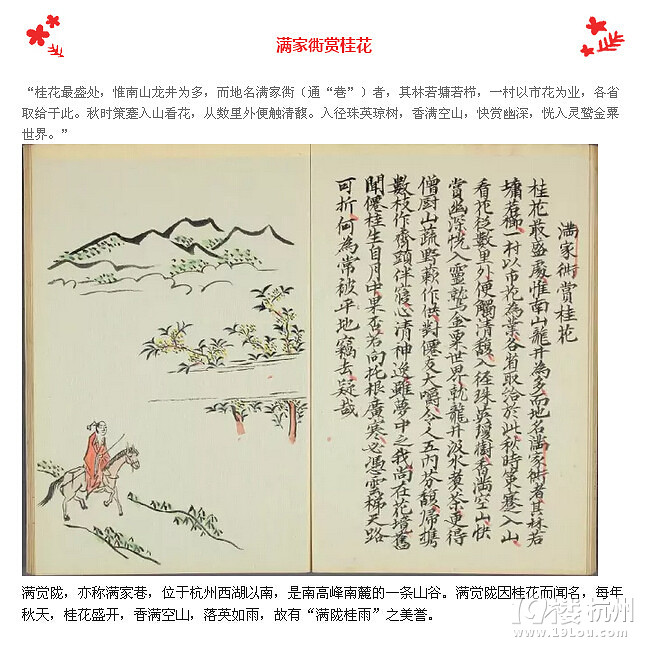 满家衖赏桂花
“桂花最盛处，惟南山龙井为多，而地名满家衖（通“巷”）者，其林若墉若栉，一村以市花为业，各省
取给于此。秋时策蹇入山看花，从数里外便触清馥。入径珠英琼树，香满空山，快赏幽深，恍入灵鹫金粟
世界。”
滿家衖賞桂花
桂花最盛處惟南山龍井為多而地名滿家衖者其林若
墉若櫛一村以市花為業各省取給於此秋時策蹇入山
看花從數里外便觸清馥入徑珠英瓊樹香滿空山快
賞幽深恍入靈鷲金粟世界就龍井汲水煮茶更得
僧厨山蔬野蔌作供對僊友大嚼令人五内芬馥歸攜
數枝作齋頭伴寢心清神逸雖夢中之我尚在花境舊
聞僊桂生自月中果否若向托根廣寒必憑雲梯天路
可折何為常被平地竊去疑哉
满觉陇，亦称满家巷，位于杭州西湖以南，是南高峰南麓的一条山谷。满觉陇因桂花而闻名，每年
秋天，桂花盛开，香满空山，落英如雨，故有“满陇桂雨”之美誉。
19楼杭州
www.19Lou.com